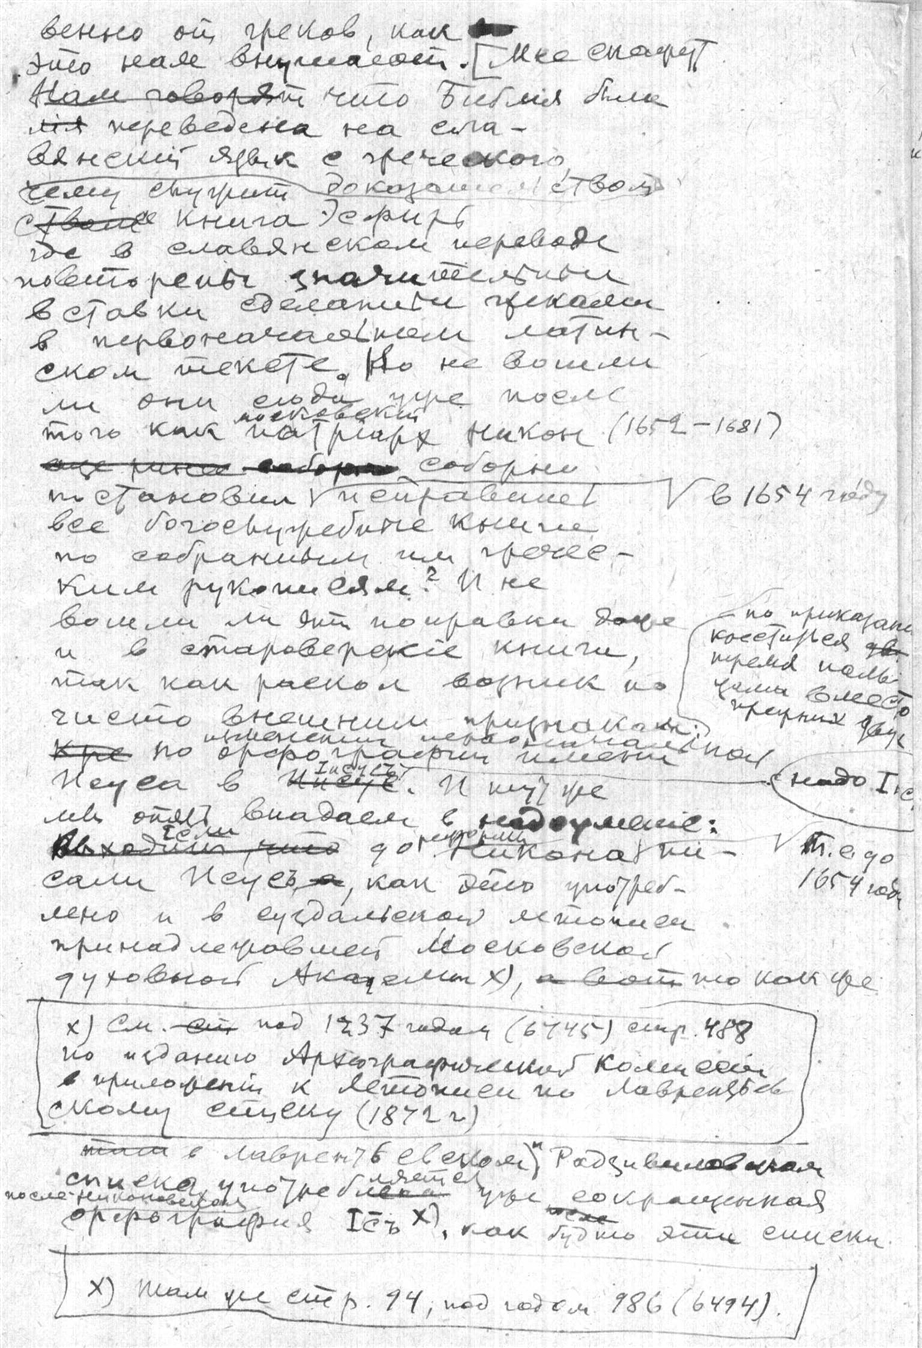 венно от греков, как
это нам внушают. [Мне скажут
Нам говорят что Библия была
переведена на сла-
вянский язык с греческого,
чему служит доказательством
книга Эсфирь
где в славянском переводе
повторены значительные
вставки сделанные
в первоначальном латин-
ском тексте. Но не вошли
ли они сюда уже после
московский
того как патриарх Никон (1652-1681)
соборне
постановил исправить V в 1654 году
все богослужебные книги
по собранным им гречес-
ким рукописям? И не
вошли ли эти поправки даже
и в староверские книги,
так как раскол возник по
чисто внешним признакам:
по приказанию
креститься
тремя паль-
цами вместо
прежних двух
по орфографии имени
Иисусъ
Исуса в Иисус. И тут же
надо Іис
мы опять впадаем в недоумение:
Если
Выходит, что до Никона пи-
V т.е. до
1654 года
сали Исусъ, как это употреб-
лено и в суздальской летописи
принадлежавшей Московской
духовной Академии х), а вот то как же
х) См. ст под 1237 годом (6745) стр. 488
по изданию Археографической Комиссии
в приложении к летописи по Лавренть ев
скому списку (1872 г)
в Лаврентьевском и Радзивиловском
списке употребляется уже сокращенная
после-никоновская
орфография Іс҃ъ х), как будто эти списки
х) Там же стр. 94, под годом 986 (6494).